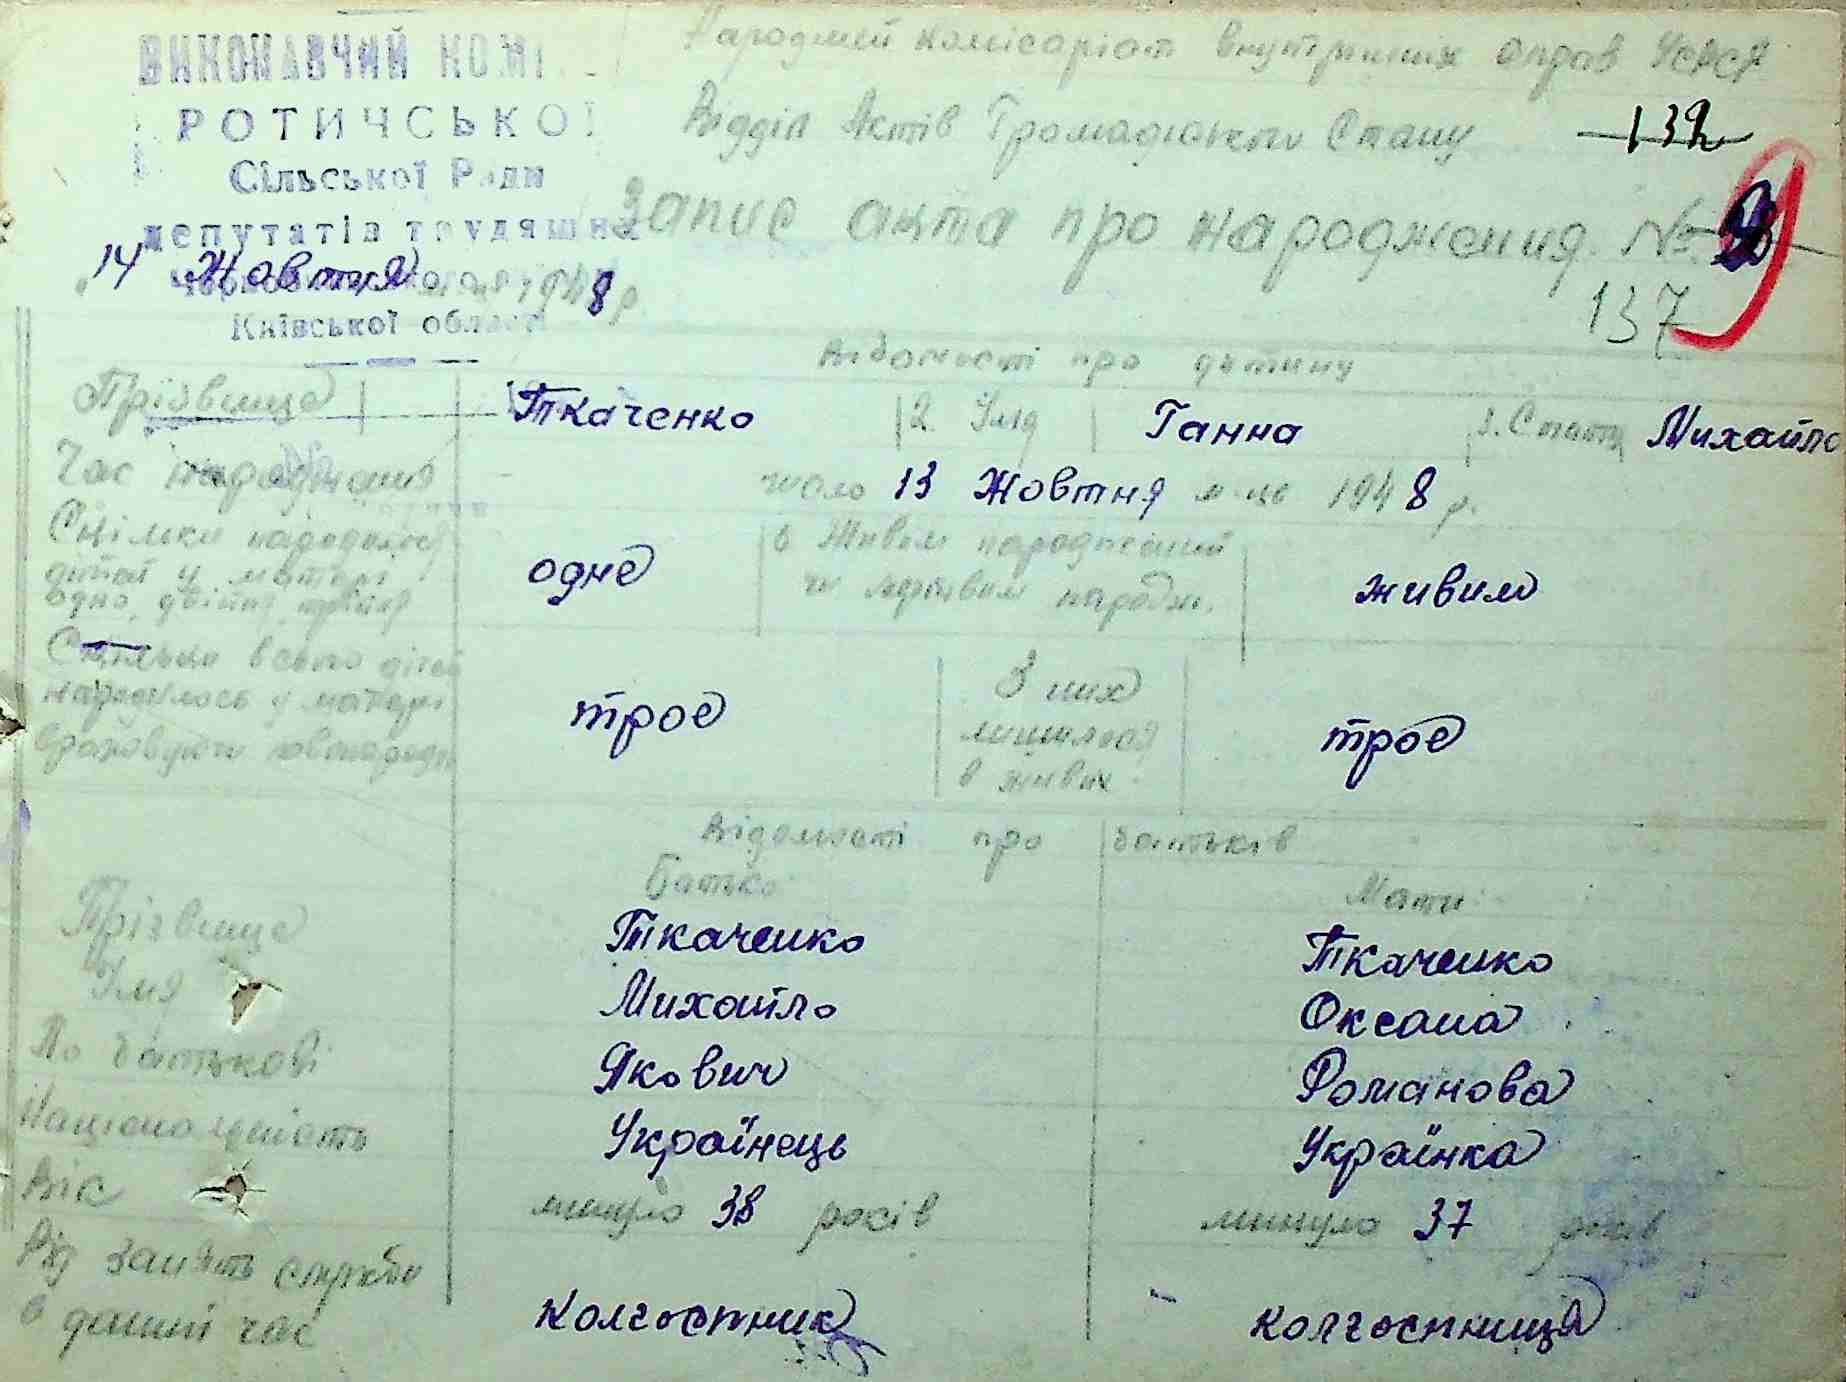 ВИКОНАВЧИЙ КОМІ
Народний комісаріат внутрішніх справ УСРСР
РОТИЧСЬКОЇ
Відділ Актів Громадського Стану
132
Сільської Ради
Запис акта про народження №
депутатів трудящих
14 Жовтня 1948 р.
137
Київської області
Відомості про дитину
Прізвище Ткаченко 2. Імя Ганна 3. Стать Михайло
Час народження число 13 Жовтня м-ць 1948 р.
Скільки народилось дітей у матері одно, двійня, трійня одне 6 Живим народжений чи мертвим народж. живим
Скільки всього дітей народилось у матері враховуючи новонародж троє З них лишилося в живих троє
Відомості про батьків
Батько Мати
Прізвище Ткаченко Ткаченко
Імя Михайло Оксана
По батькові Якович Романова
Національність Українець Українка
Вік минуло 38 років минуло 37 років
Рід занять служби в данні час колгоспник колгоспниця